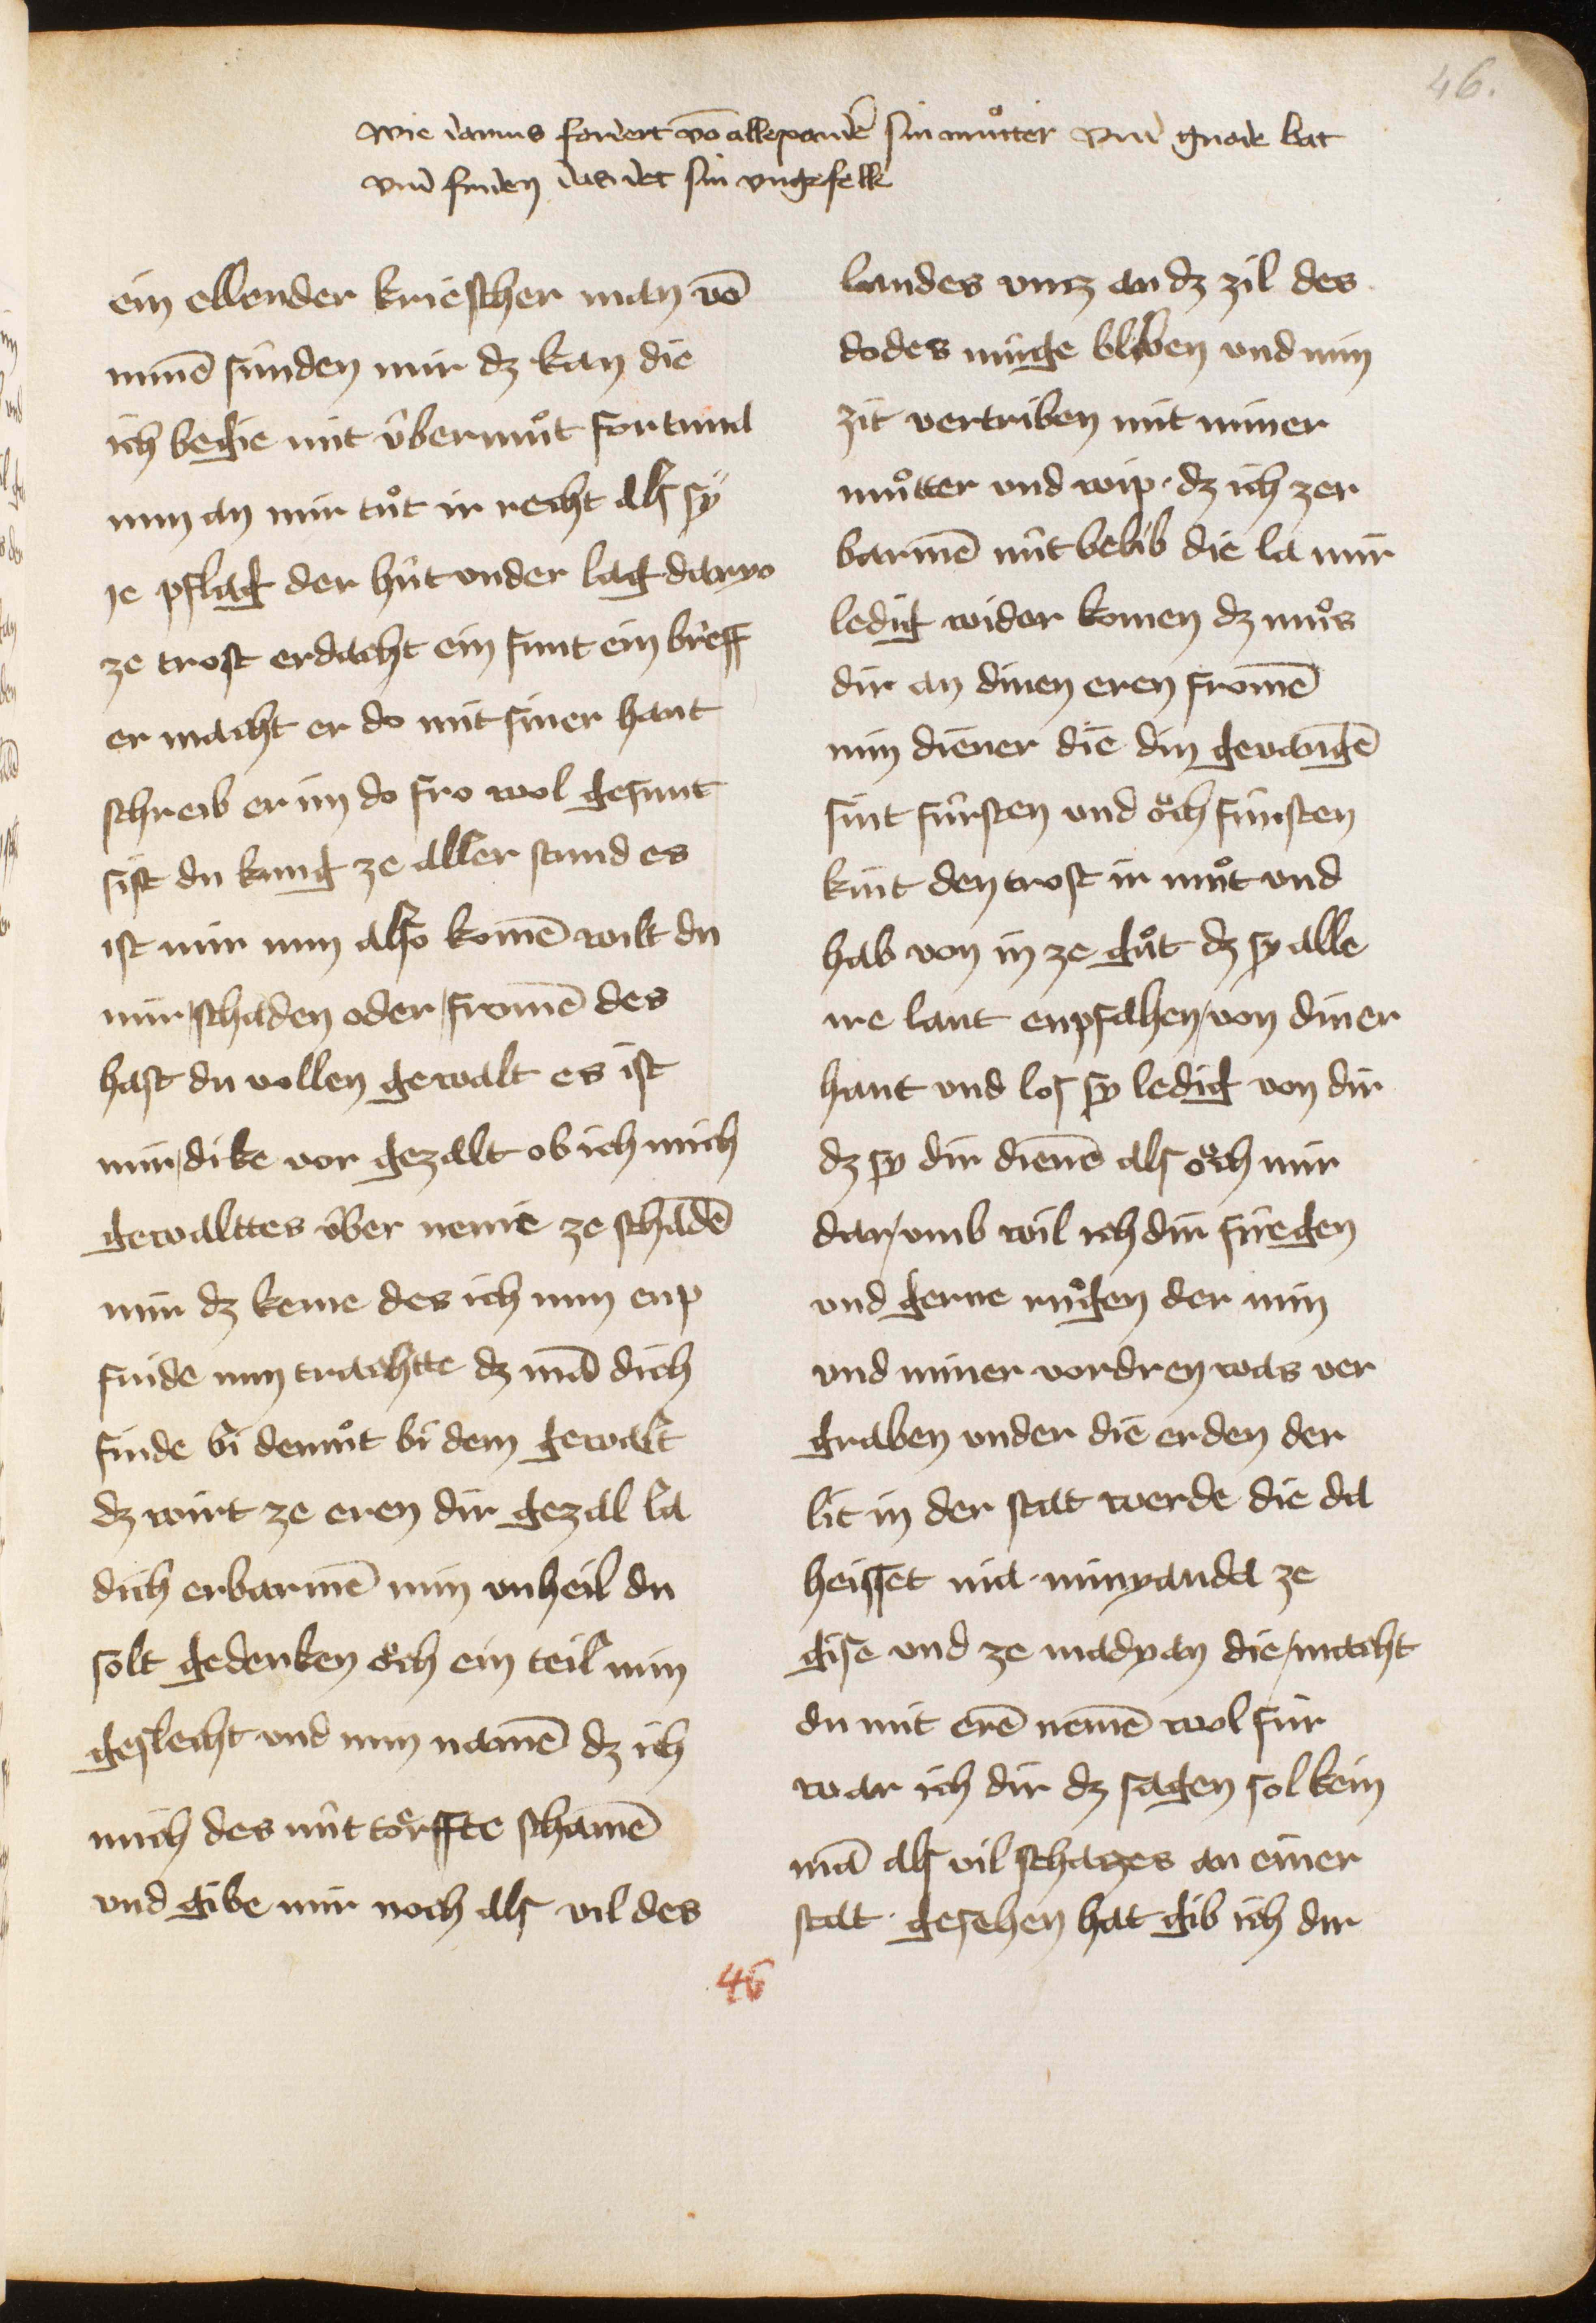 46.
wie darius fordert vō allexandē sin muͦtter vnd gnode bat
vnd friden das det sin vngefelle
ein ellender kriescher man vō
minē sünden mir dz kan die
ich begie mit übermuͦt fortuna
nun an mir tuͦt ir recht als sÿ
ie pflag der hüt under lag daryo
ze trost erdacht ein funt ein breff
er macht er do mit siner hant
schreib er im do fro wol gesunt
sist du kung ze aller stund es
ist mir nun also komē wilt du
mir schaden oder fromē des
hast du vollen gewalt es ist
mir dike vor gezalt ob ich mich
gewalttes über neme ze schadē
mir dz keme des ich nun enp
finde nun trachtte dz mā dich
finde bi demuͦt bi dem gewalt
dz wirt ze eren dir gezal la
dich erbarmē min unheil du
solt gedenken oͤch ein teil min
geslecht und min namē dz ich
mich des nüt toͤrffte schamē
und gibe mir noch als vil des
landes uncz an dz zil des
dodes müge bliben und min
zit vertriben mit miner
muͦtter und wip · dz ich zer
barmē nüt belib die la mir
ledig wider komen dz muͦs
dir an dinen eren fromē
min diener die din gevangē
sint fürsten und oͤch fürsten
kint den trost ir muͦt und
hab von in ze guͦt dz sy alle
ire lant enpfahen von diner
hant und los sy ledig von dir
dz sy dir dienē als oͤch mir
dar umb wil ich dir füegen
und gerne rügen der min
und miner vordren was ver
graben under die erden der
lit in der stat werde die da
heisset nia · minyanda ze
gise und ze madyan die macht
du mit erē nemē wol für
war ich dir dz sagen sol kein
mā als vil schaczes an einer
stat · gesehen hat gib ich dir
46